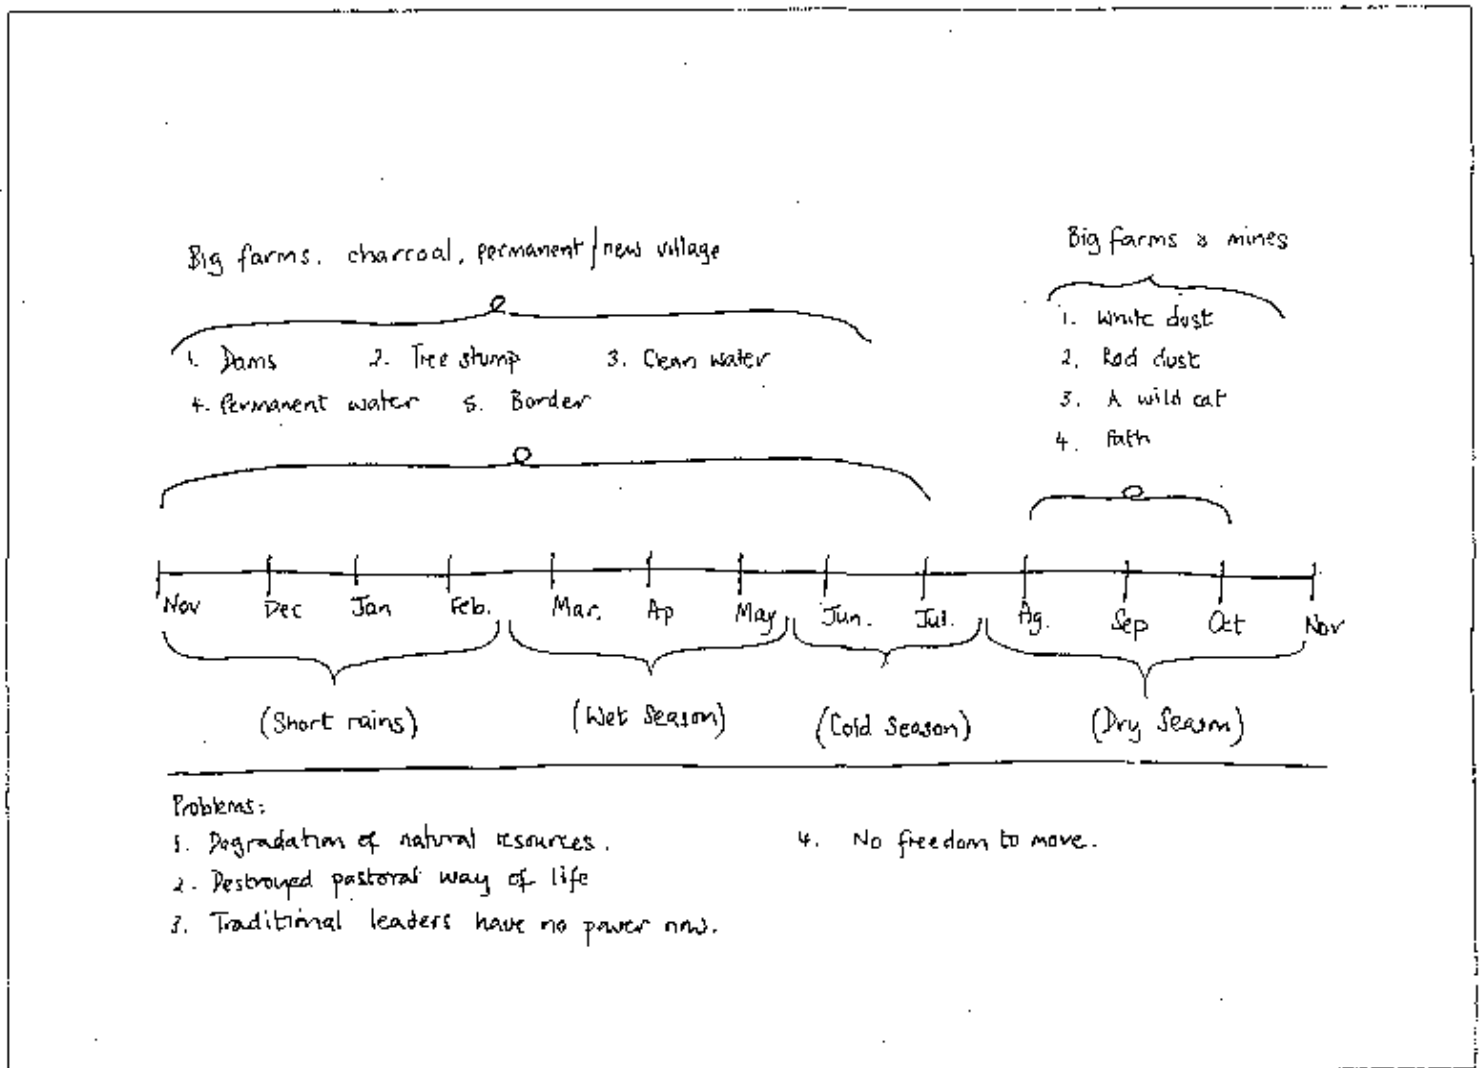 Big farms. charcoal, permanent/new village
1. Dams 2. Tree stump 3. Clean water
4. Permanent water 5. Border
Big farms & mines
1. White dust
2. Red dust
3. A wild cat
4. Path
Nov Dec Jan Feb. Mar. Ap May Jun. Jul. Ag. Sep Oct Nov
(Short rains) (Wet Season) (Cold Season) (Dry Season)
Problems:
1. Degradation of natural resources.
2. Destroyed pastoral way of life
3. Traditional leaders have no power now.
4. No freedom to move.